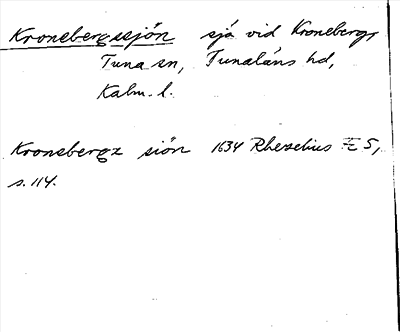 Kronebergssjön sjö vid Kroneberg,
Tuna sn, Tunaläns hd,
Kalm. l.
Kronebergz siön 1634 Rhezelius F 5,
s. 114.